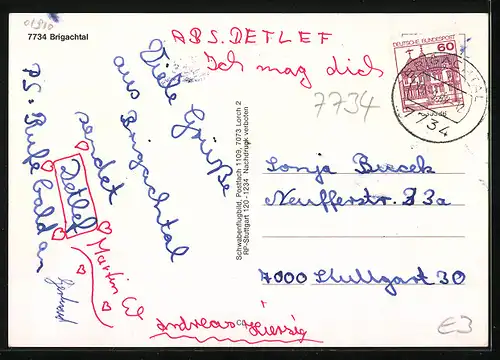 01910
7734 Brigachtal
ABS. DETLEF
Ich mag dich
DEUTSCHE BUNDESPOST
60
7734
7734
Viele Grüße
aus Brigachtal
sendet
Detlef
PS: Rufe bald an
Martin
Andreas
Schwabenflugbild, Postfach 1109, 7073 Lorch 2
RP-Stuttgart 120-1234 · Nachdruck verboten
Sonja
Neufferstr. 33a
7000 Stuttgart 30
E3